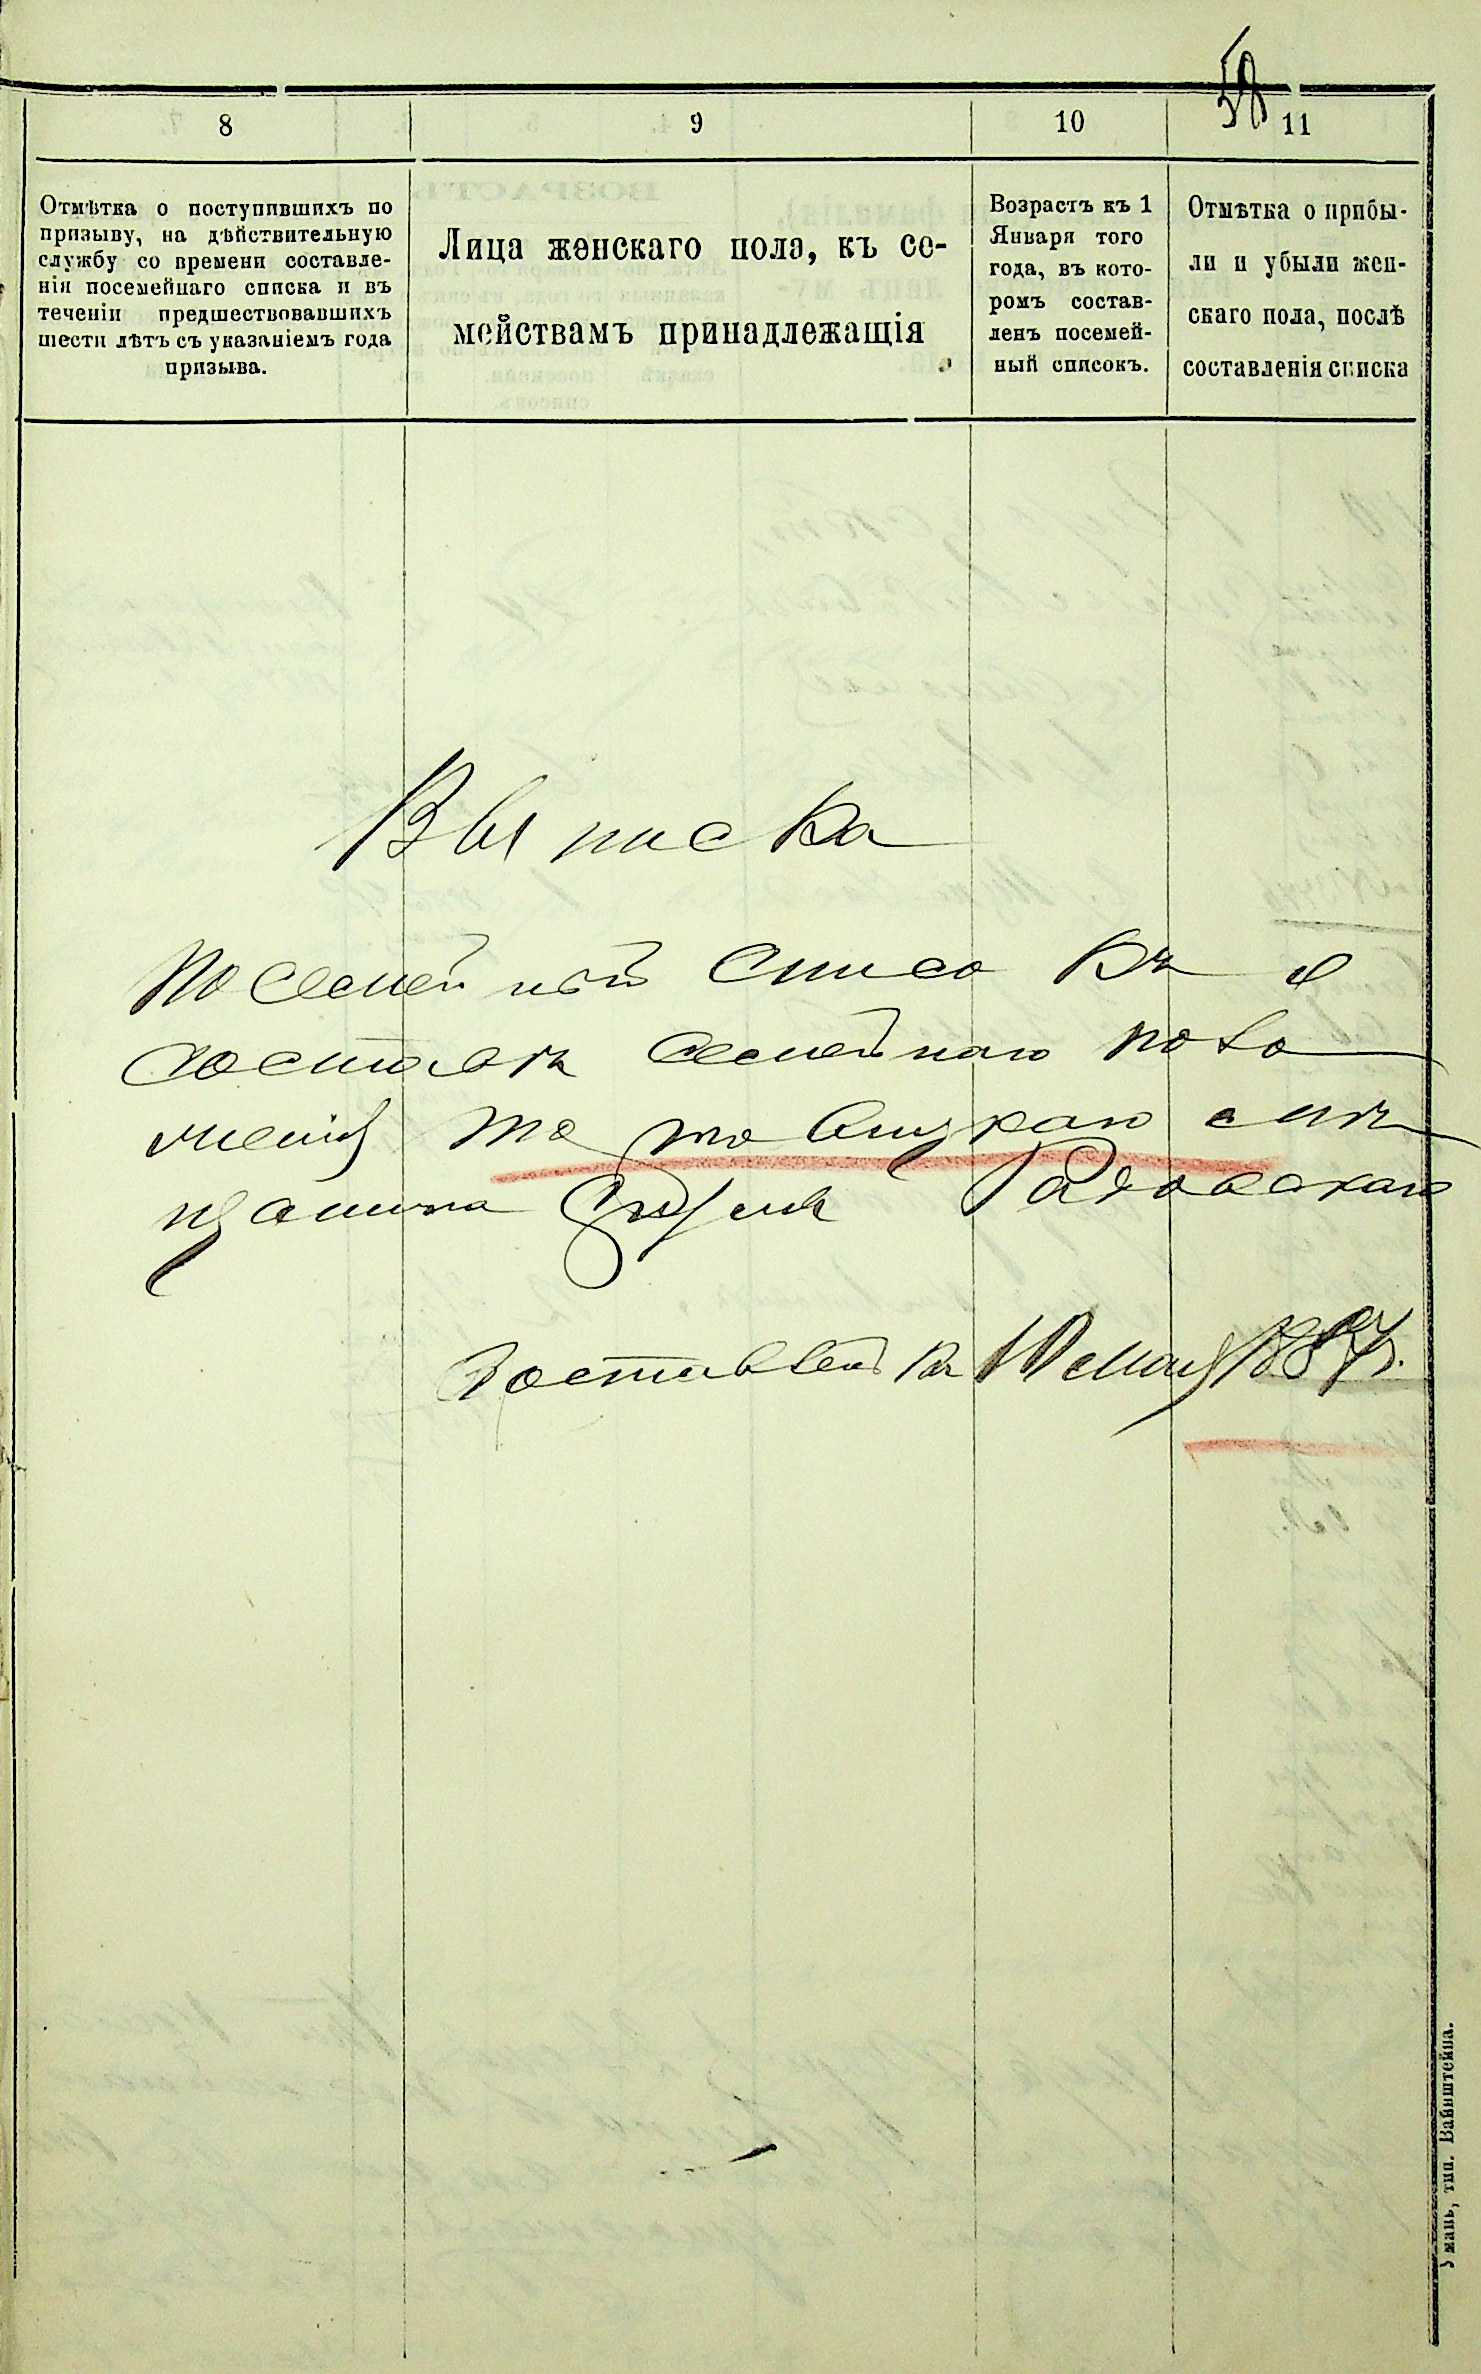 58
8 9 10 11
Отмѣтка о поступившихъ по
призыву, на дѣйствительную
службу со времени составле-
нія посемейнаго списка и въ
теченіи предшествовавшихъ
шести лѣтъ съ указаніемъ года
призыва.
Лица женскаго пола, къ се-
мействамъ принадлежащія
Возрастъ къ 1
Января того
года, въ кото-
ромъ состав-
ленъ посемей-
ный списокъ.
Отмѣтка о прибы-
ли и убыли жен-
скаго пола, послѣ
составленія списка
Выписка
Посемейный Списокъ о
составѣ семейнаго поло
женія
щанина Раховскаго
Составленъ 10 мая
Умань, тип. Вайнштейна.